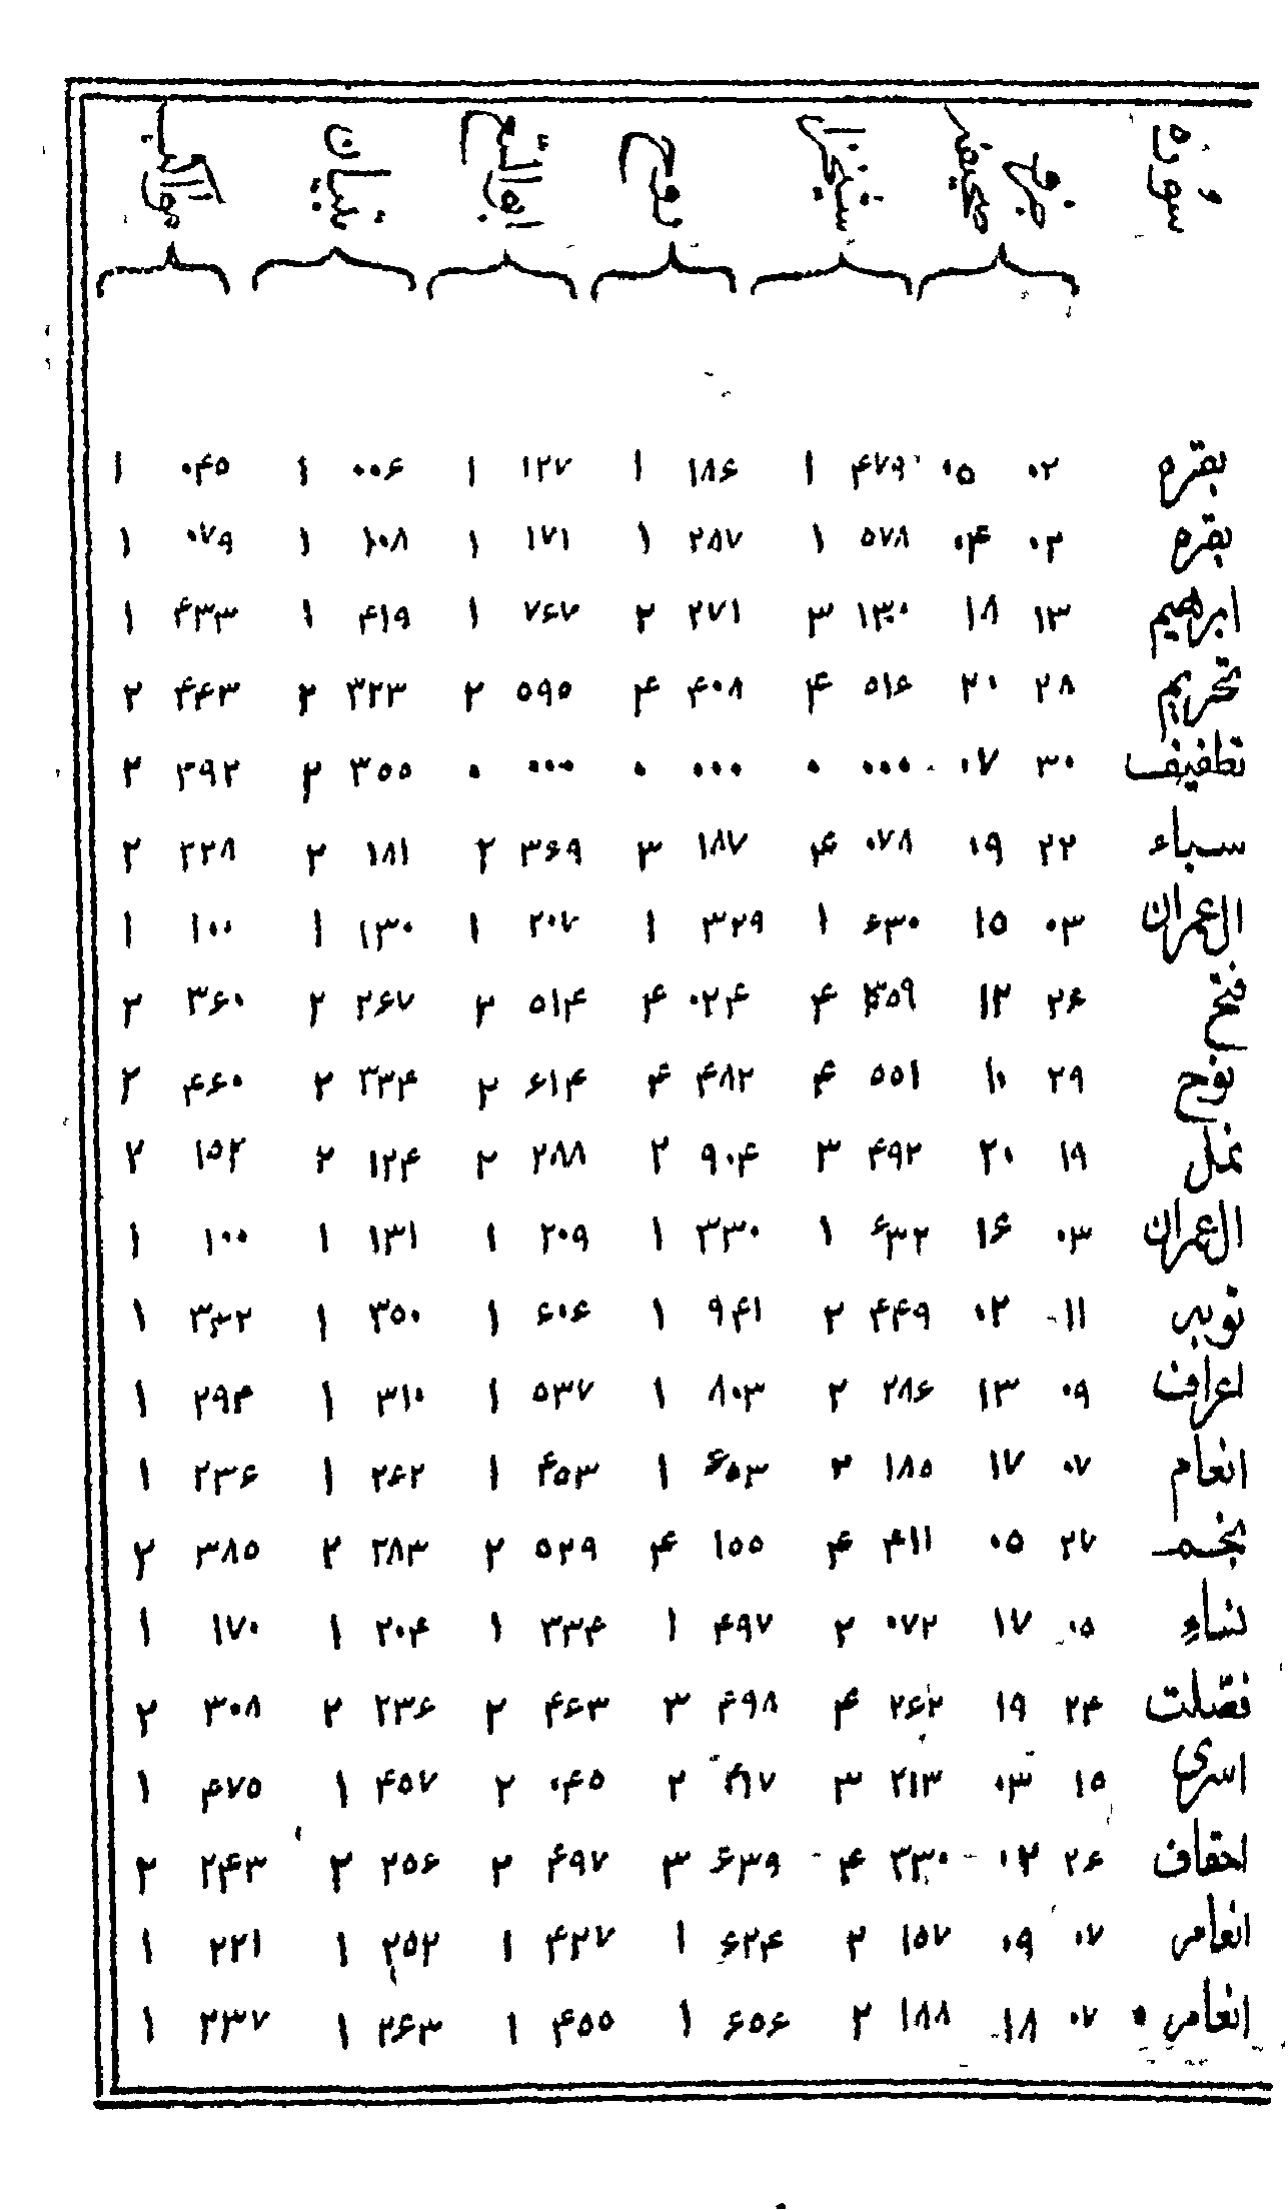 سوره جزو صحیفه شیخزاده روح ابوالفتوح تبیان
بقره ۰۲ ۰۵ ۴۷۹ ۱ ۱۸۶ ۱ ۱۲۷ ۱ ۰۰۶ ۱ ۰۴۵ ۱
بقره ۰۲ ۰۴ ۵۷۸ ۱ ۲۸۷ ۱ ۱۷۱ ۱ ۱۰۸ ۱ ۰۷۹ ۱
ابرهیم ۱۳ ۱۸ ۱۳۰ ۳ ۲۷۱ ۲ ۷۶۷ ۱ ۴۱۹ ۱ ۴۳۳ ۱
تحریم ۲۸ ۲۰ ۵۱۶ ۴ ۴۰۸ ۴ ۵۹۵ ۲ ۳۲۳ ۲ ۴۴۳ ۲
تطفیف ۳۰ ۰۷ ۰۰۰ ۰ ۰۰۰ ۰ ۰۰۰ ۰ ۳۵۵ ۲ ۳۹۲ ۲
سباء ۲۲ ۰۹ ۰۷۸ ۴ ۱۸۷ ۳ ۳۶۹ ۲ ۱۸۱ ۲ ۲۲۸ ۲
ال عمران ۰۳ ۱۵ ۶۳۰ ۱ ۳۲۹ ۱ ۲۰۷ ۱ ۱۳۰ ۱ ۱۰۰ ۱
فتح ۲۶ ۱۲ ۳۵۹ ۴ ۰۲۴ ۴ ۵۱۴ ۲ ۲۶۷ ۲ ۳۶۰ ۲
نوح ۲۹ ۱۰ ۵۵۱ ۴ ۴۸۲ ۴ ۶۱۴ ۲ ۳۳۴ ۲ ۴۶۰ ۲
نمل ۱۹ ۲۰ ۴۹۲ ۳ ۹۰۴ ۲ ۲۸۸ ۲ ۱۲۴ ۲ ۱۵۲ ۲
ال عمران ۰۳ ۱۶ ۶۳۲ ۱ ۳۳۰ ۱ ۲۰۹ ۱ ۱۳۱ ۱ ۱۰۰ ۱
توبه ۱۱ ۰۲ ۴۴۹ ۲ ۹۴۱ ۱ ۶۰۶ ۱ ۳۵۰ ۱ ۳۳۲ ۱
اعراف ۰۹ ۱۳ ۲۸۶ ۲ ۸۰۳ ۱ ۵۳۷ ۱ ۳۱۰ ۱ ۲۹۴ ۱
انعام ۰۷ ۱۷ ۱۸۵ ۲ ۶۵۳ ۱ ۴۵۳ ۱ ۲۶۲ ۱ ۲۳۶ ۱
نجم ۲۷ ۰۵ ۴۱۱ ۴ ۱۵۵ ۴ ۵۲۹ ۲ ۲۸۳ ۲ ۳۸۵ ۲
نساء ۰۵ ۱۷ ۰۷۲ ۲ ۴۹۷ ۱ ۳۳۴ ۱ ۲۰۴ ۱ ۱۷۰ ۱
فصّلت ۲۴ ۱۹ ۲۶۲ ۴ ۴۹۸ ۳ ۴۶۳ ۲ ۲۳۶ ۲ ۳۰۸ ۲
اسری ۱۵ ۰۳ ۲۱۳ ۳ ۴۱۷ ۲ ۰۴۵ ۲ ۴۵۷ ۱ ۴۷۵ ۱
احقاف ۲۶ ۰۲ ۳۳۰ ۴ ۶۳۹ ۳ ۴۹۷ ۲ ۲۵۶ ۲ ۲۴۳ ۲
انعام ۰۷ ۰۹ ۱۵۷ ۲ ۶۲۴ ۱ ۴۲۷ ۱ ۲۵۲ ۱ ۲۲۱ ۱
انعام ۰۷ ۱۸ ۱۸۸ ۲ ۶۵۶ ۱ ۴۵۵ ۱ ۲۶۳ ۱ ۲۳۷ ۱